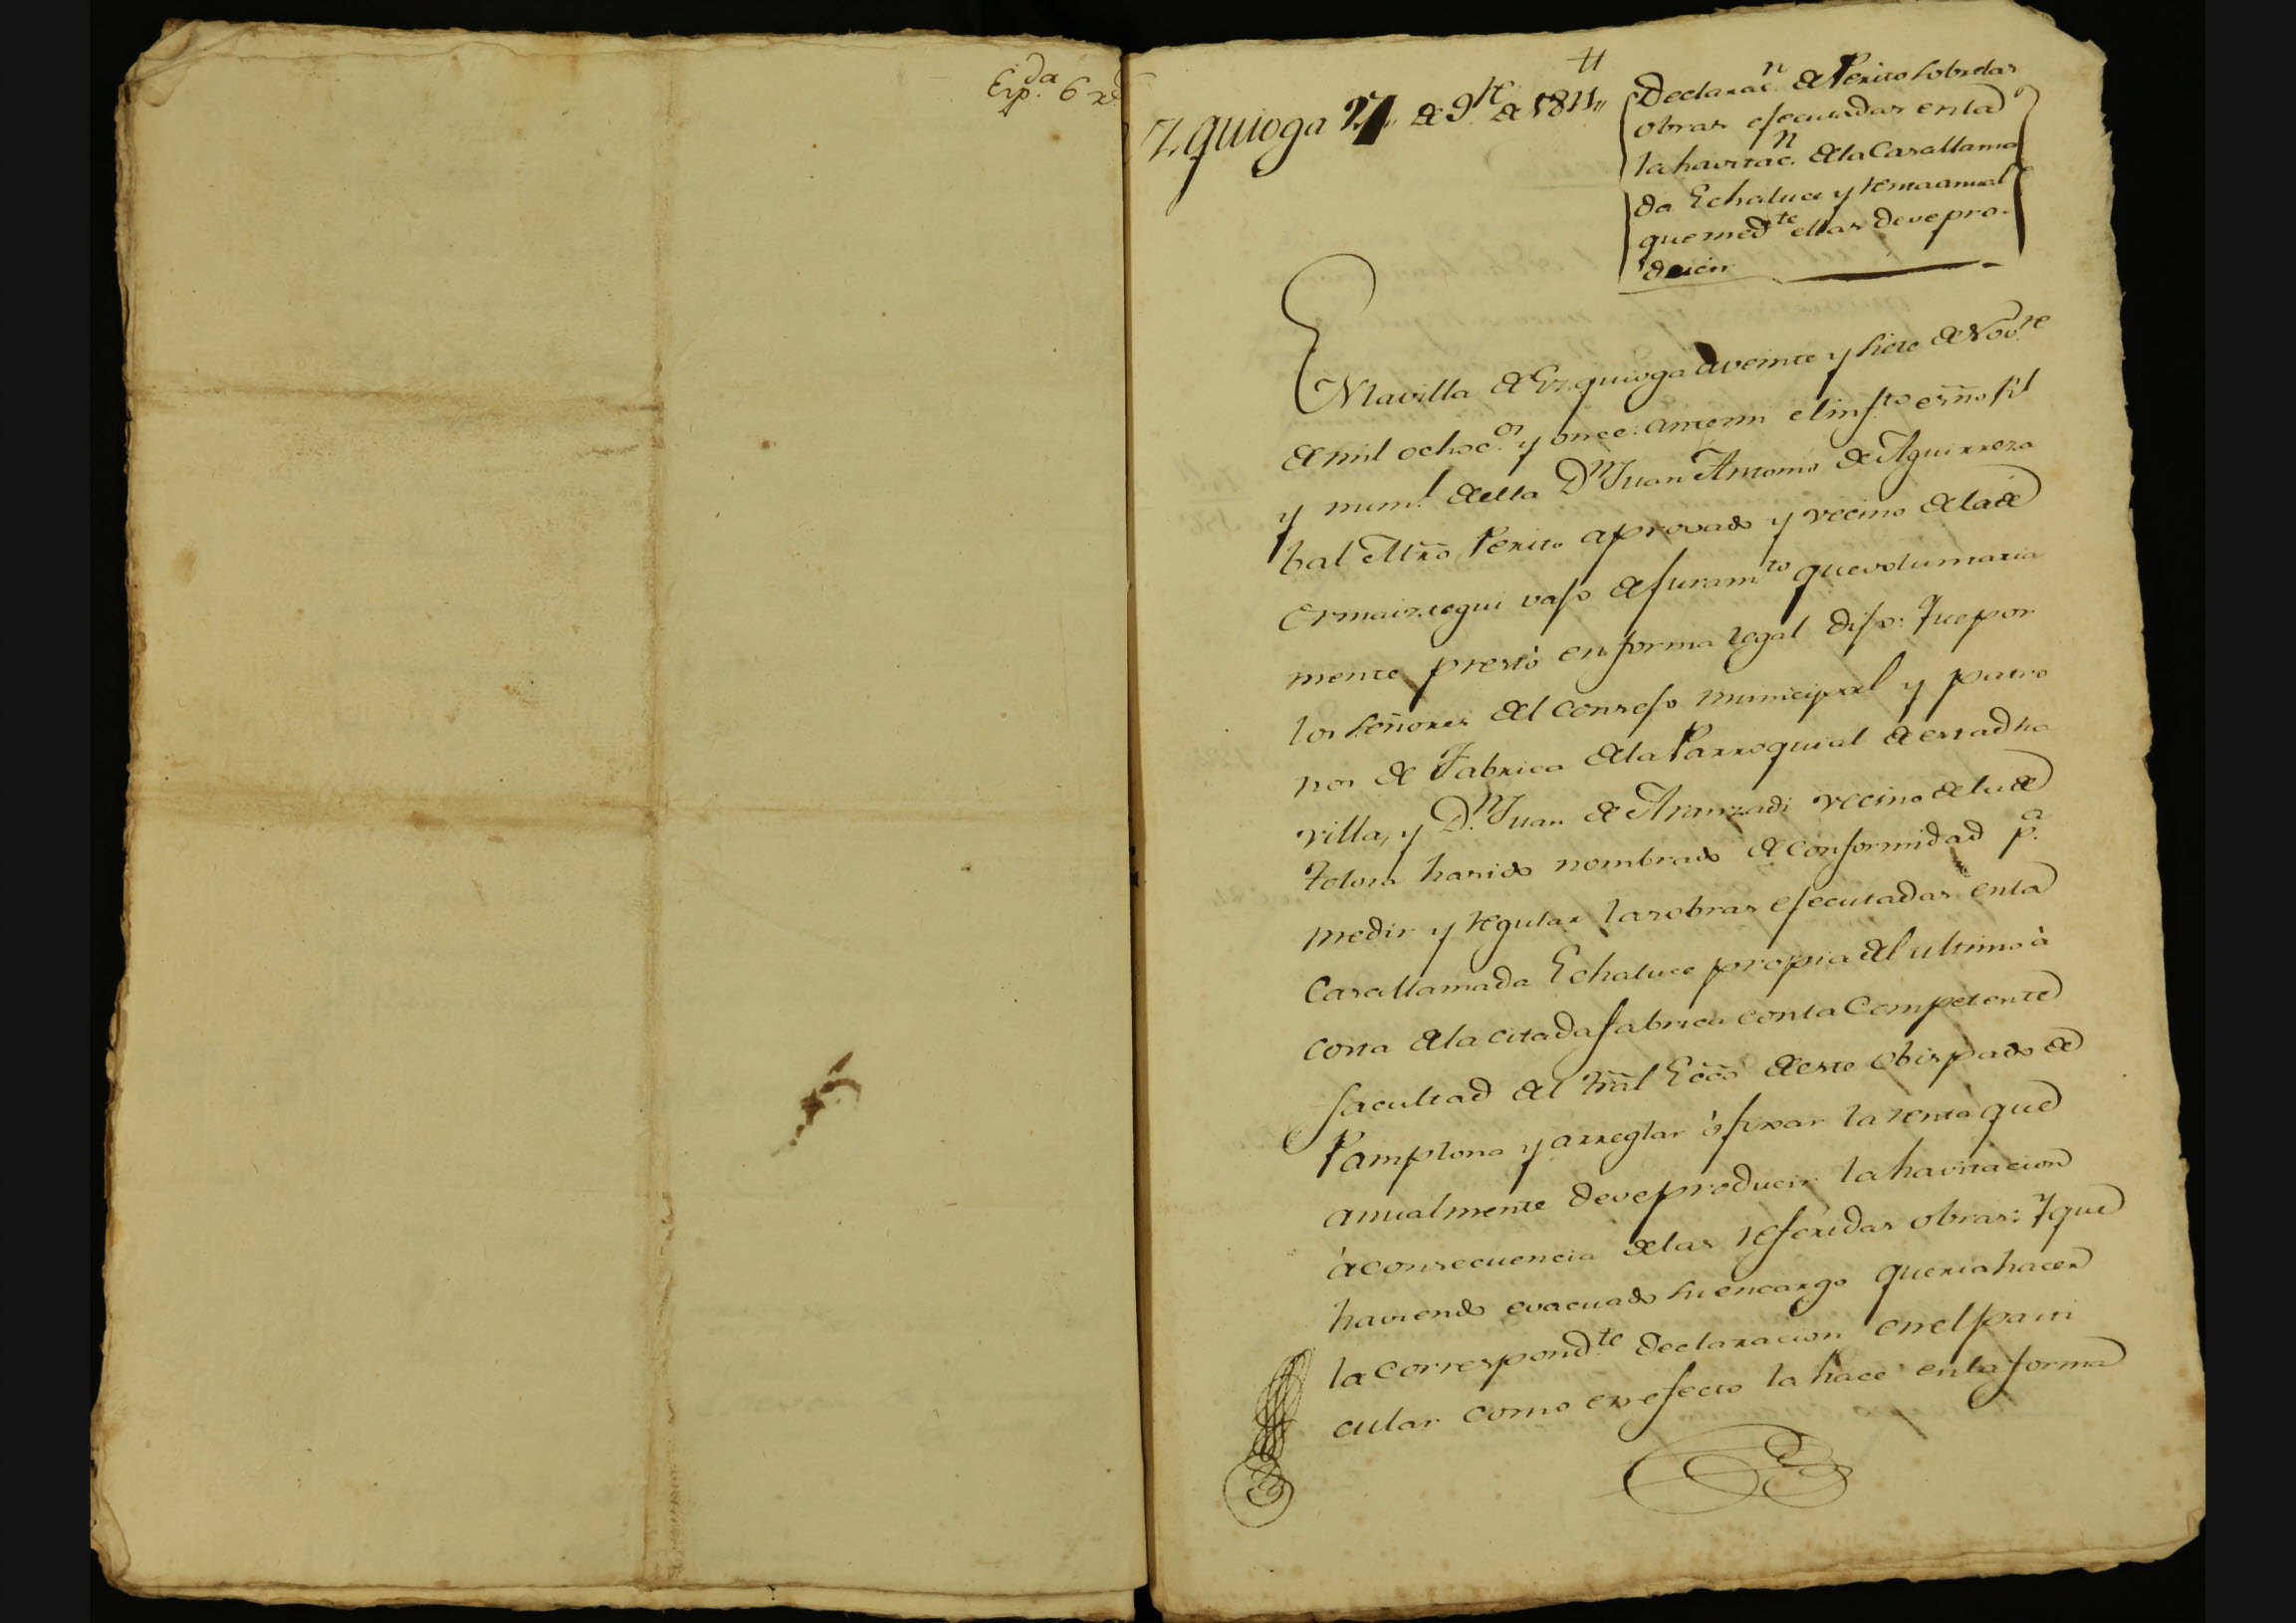 Exp.da 6 rs
Zquioga 27,, de 9re de 1811,,
Declarac.n de Perito sobrelas
obras efecutadas enla
la havitac.n dela Casallama
da Echaluce y rentaanual
quemed.te ellas deve pro-
ducir
ENlavilla de Ezquioga aveinte y siete de Nov.re
de mil ochoc.os y once: antemi el inf.to esñno Rl
y num.l deella D.n Juan Antonio de Aguirreza
bal Mtro Perito aprovado y vecino dela de
Ormaiztegui vajo de juram.to quevoluntaria
mente prestò enforma legal dijo: Quepor
los señores del consejo municipal y patro
nos de Fabrica dela Parroquial de estadha
villa, y D.n Juan de Aranzadi vecino dela de
Tolosa hasido nombrado de conformidad p.a
medir y regular lasobras efecutadas enla
Casallamada Echaluce propia del ultimo à
costa dela citada fabrica conla Competente
facultad del Trâl Ecco deeste obispado de
Pamplona y arreglar ò fixar la renta que
anualmente deveproducir la havitacion
àconsecuencia delas referidas obras: Y que
haviendo evacuado suencargo queriahacer
la correspond.te declaracion enelparti
cular como enefecto la hace enla forma